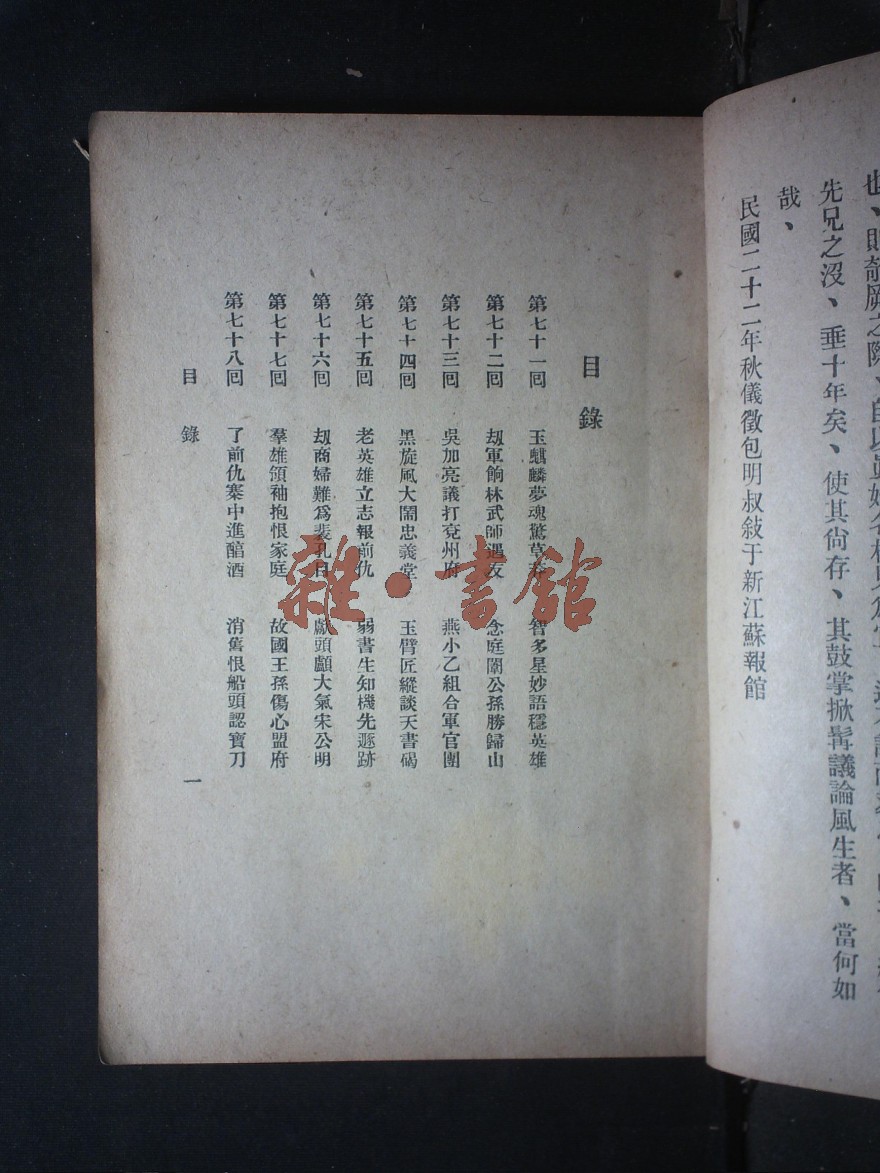 先兄之沒、垂十年矣、使其尙存、其鼓掌掀髯議論風生者、當何如
哉、
民國二十二年秋儀徵包明叔敍于新江蘇報館
目錄
第七十一回 玉麒麟夢魂驚草 智多星妙語穩英雄
第七十二回 刧軍餉林武師遇友 念庭闈公孫勝歸山
第七十三回 吳加亮議打兗州府 燕小乙組合軍官團
第七十四回 黑旋風大鬧忠義堂 玉臂匠縱談天書碣
第七十五回 老英雄立志報前仇 弱書生知機先遯跡
第七十六回 刧商婦難爲裴孔目 獻頭顱大氣宋公明
第七十七回 羣雄領袖抱恨家庭 故國王孫傷心盟府
第七十八回 了前仇寨中進醕酒 消舊恨船頭認寶刀
目錄 一
雜·書館